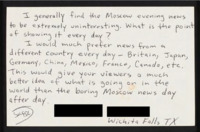 I generally find the Moscow evening news
to be extremely uninteresting. What is the point
of showing it every day?
I would much prefer news from a
different country every day - Britain, Japan,
Germany, China, Mexico, France, Canada, etc.
This would give your viewers a much
better idea of what is going on in the
world than the boring Moscow news day
after day.
Wichita Falls, TX